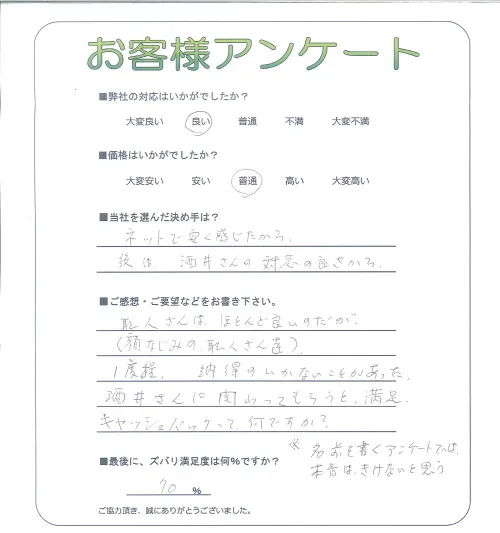 お客様アンケート
■弊社の対応はいかがでしたか？
大変良い 良い 普通 不満 大変不満
■価格はいかがでしたか？
大変安い 安い 普通 高い 大変高い
■当社を選んだ決め手は？
ネットで安く感じたから、
後は、酒井さんの対応の良さから。
■ご感想・ご要望などをお書き下さい。
職人さんは、ほとんど良いのだが、
(顔なじみの、職人さん達)
1度程、納得のいかないことがあった。
酒井さんに関わってもらうと、満足。
キャッシュバックって、何ですか？
※名前を書くアンケートでは、
本音は、きけないと思う
■最後に、ズバリ満足度は何％ですか？
70 ％
ご協力頂き、誠にありがとうございました。